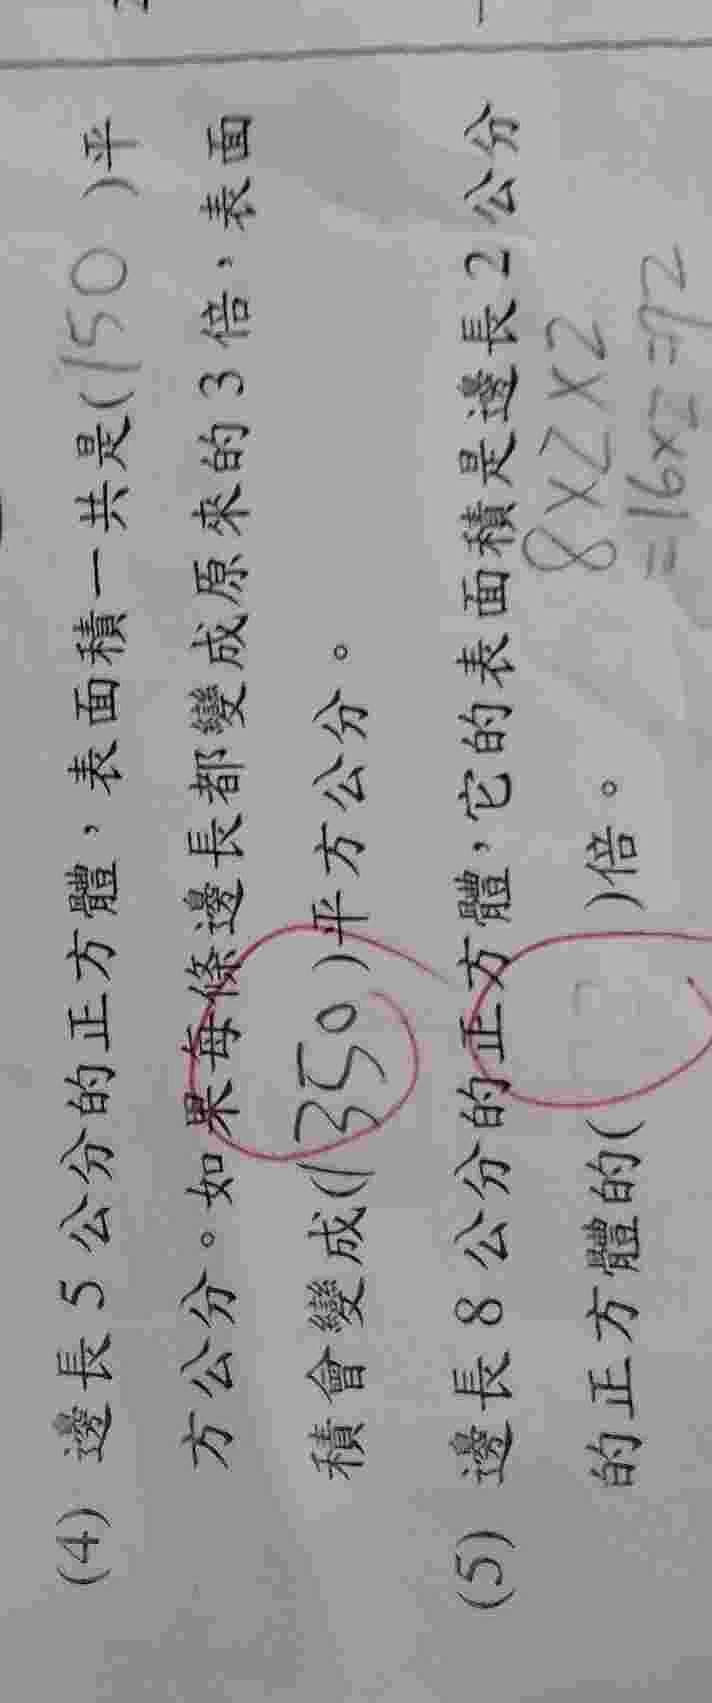 (4) 邊長 5 公分的正方體，表面積一共是(150)平
方公分。如果每條邊長都變成原來的 3 倍，表面
積會變成(1350)平方公分。
(5) 邊長 8 公分的正方體，它的表面積是邊長 2 公分
8×2×2
的正方體的( )倍。